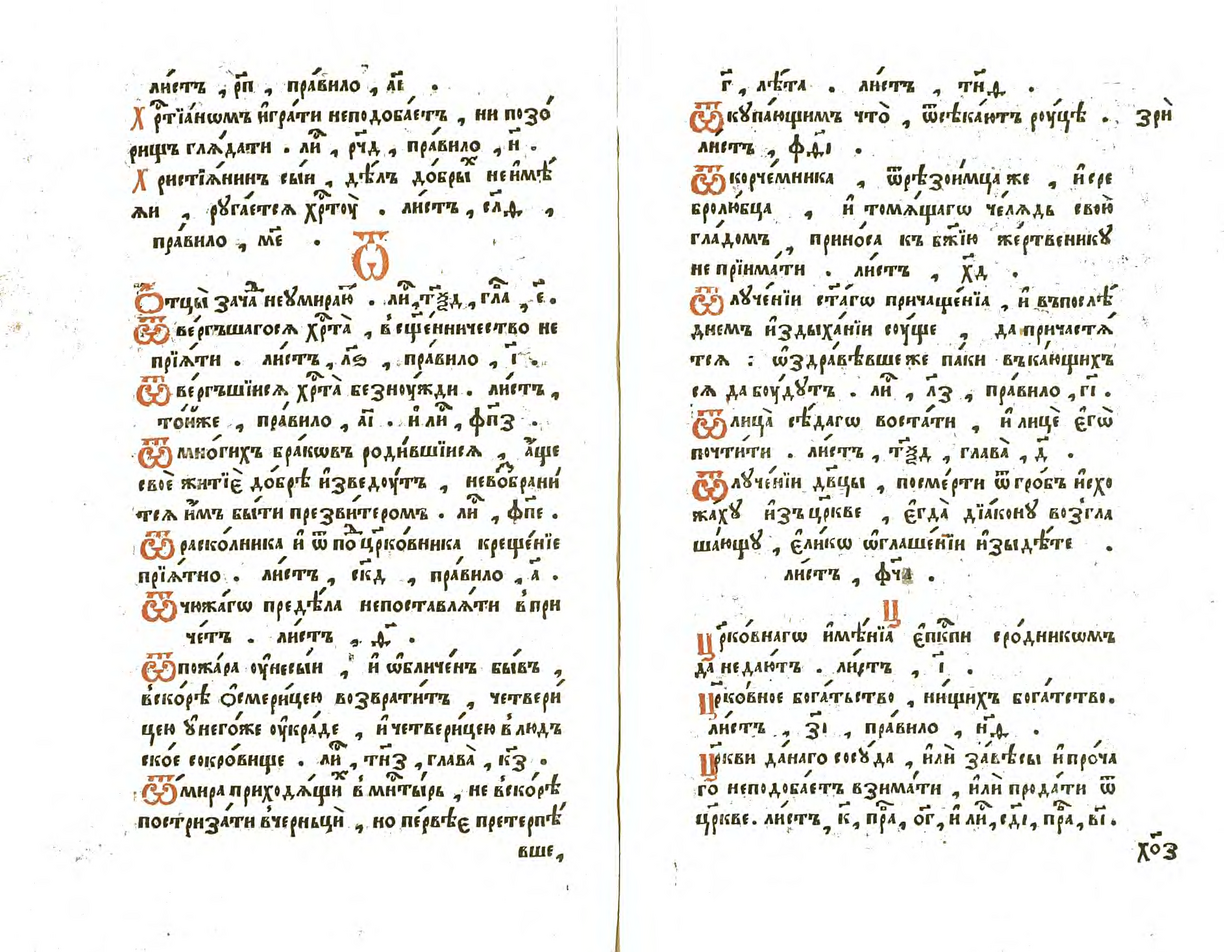 ли́стъ , р҃п , пра́вило , а҃і .
Хрⷭ҇тїа́нѡмъ и҆гра́ти неподоба́етъ , ни позо́
рищъ глѧ́дати . лиⷭ҇ , рч҃д , пра́вило , н҃ .
Христїѧ́нинъ сы́и , дѣ́лъ до́брыⷯ неи҆мѣ́
ѧи , руга́етсѧ хрⷭ҇тоу̀ . ли́стъ , сл҃д ,
пра́вило , м҃е .
Ѿ
Ѻ҆тцы̀ зача́ⷧ неумира́ю . лиⷭ҇ , тѯ҃д , глаⷡ҇ , е҃ .
Ѿве́ргъшагосѧ хрⷭ҇та̀ , в҆сщ҃е́нничество не
прїѧ́ти . ли́стъ , л҃ѕ , пра́вило , і҃ .
Ѿве́ргъшїисѧ хрⷭ҇та̀ безноу́жди . ли́стъ ,
то́йже , пра́вило , а҃і . и҆ лиⷭ҇ , фп҃з .
Ѿ мно́гихъ бра́ковъ роди́вшїисѧ , а҆́ще
своѐ житїѐ до́брѣ и҆зведоу́тъ , невоⷥбрани́
тсѧ и҆̀мъ бы́ти презви́теромъ . лиⷭ҇ , фп҃е .
Ѿ раско́лника и҆ ѿ поⷣцр҃ко́вника креще́нїе
прїѧ́тно . ли́стъ , ск҃д , пра́вило , а҃ .
Ѿ чюжа́гѡ преде́ла непоставлѧ́ти в҆при
че́тъ . ли́стъ , д҃ .
Ѿ пожа́ра оу҆несы́и , и҆ ѡ҆бличе́нъ бы́въ ,
в҆ско́рѣ ѻ҆смери́цею возврати́тъ , четвери́
цею ꙋ҆ него́же оу҆кра́де , и҆ четвери́цею в҆ лю́дъ
скоѐ сокро́вище . лиⷭ҇ , тн҃з , глава̀ , к҃з .
Ѿ ми́ра приходѧ́щиⷯ в҆ мнⷭ҇ты́рь , не в҆ско́рѣ
постриза́ти в҆черньцы̀ , но пе́рвѣе претерпѣ́
вше,
г҃ , лѣ́та . ли́стъ , тн҃д .
Ѿкупа́ющимъ что̀ , ѿсѣка́ютъ роу́цѣ . зрѝ
ли́стъ , фд҃і .
Ѿ корче́мника , ѿ рѣзои́мца же , и҆ сре
бролю́бца , и҆ томѧ́щагѡ че́лѧдь свою̀
гла́домъ , прино́са къ бж҃їю же́ртвеникꙋ
не прїима́ти . ли́стъ , х҃д .
Ѿлуче́нїи ст҃а́гѡ причаще́нїа , и҆ въ послѣ́
днемъ и҆здыха́нїи соу́ще , да причастѧ́
тсѧ : ѡ҆здра́вѣвше же па́ки въ ка́ющихъ
сѧ да боу́дутъ . лиⷭ҇ , л҃з , пра́вило , г҃і .
Ѿ лица̀ сѣда́гѡ воста́ти , и҆ лицѐ є҆гѡ̀
почти́ти . ли́стъ , тѯ҃д , глава̀ , д҃ .
Ѿлуче́нїи дв҃цы , посме́рти ѿ гро́бъ и҆схо
жа́хꙋ и҆зъ цр҃кве , є҆гда̀ дїа́кону возгла
ша́ющꙋ , є҆ли́кѡ ѡ҆глаше́нїи и҆зыдѣ́те .
ли́стъ , фч҃а .
Ц
Цр҃ко́внагѡ и҆мѣ́нїа є҆пкⷭ҇пи сро́дникѡмъ
да̀ не даю́тъ . ли́стъ , і҃ .
Цр҃ко́вное бога́тьство , ни́щихъ бога́тство.
ли́стъ , з҃і , пра́вило , н҃д .
Цр҃кви да́наго сосꙋ́да , и҆лѝ завѣ́сы и҆ про́ча
го̀ неподоба́етъ взима́ти , и҆лѝ прода́ти ѿ
цр҃кве. ли́стъ , к҃ , праⷡ҇ , о҃г , и҆ лиⷭ҇ , сд҃і , праⷡ҇ , в҃і .
хо҃з